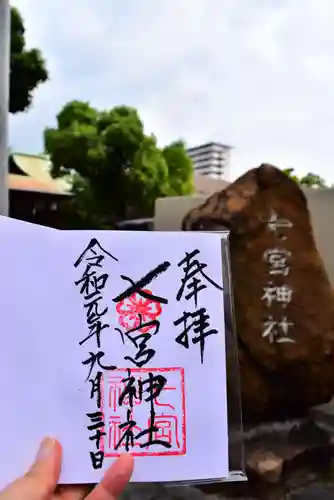 奉拝
七宮神社
令和元年九月三十日
七宮神社
七宮神社